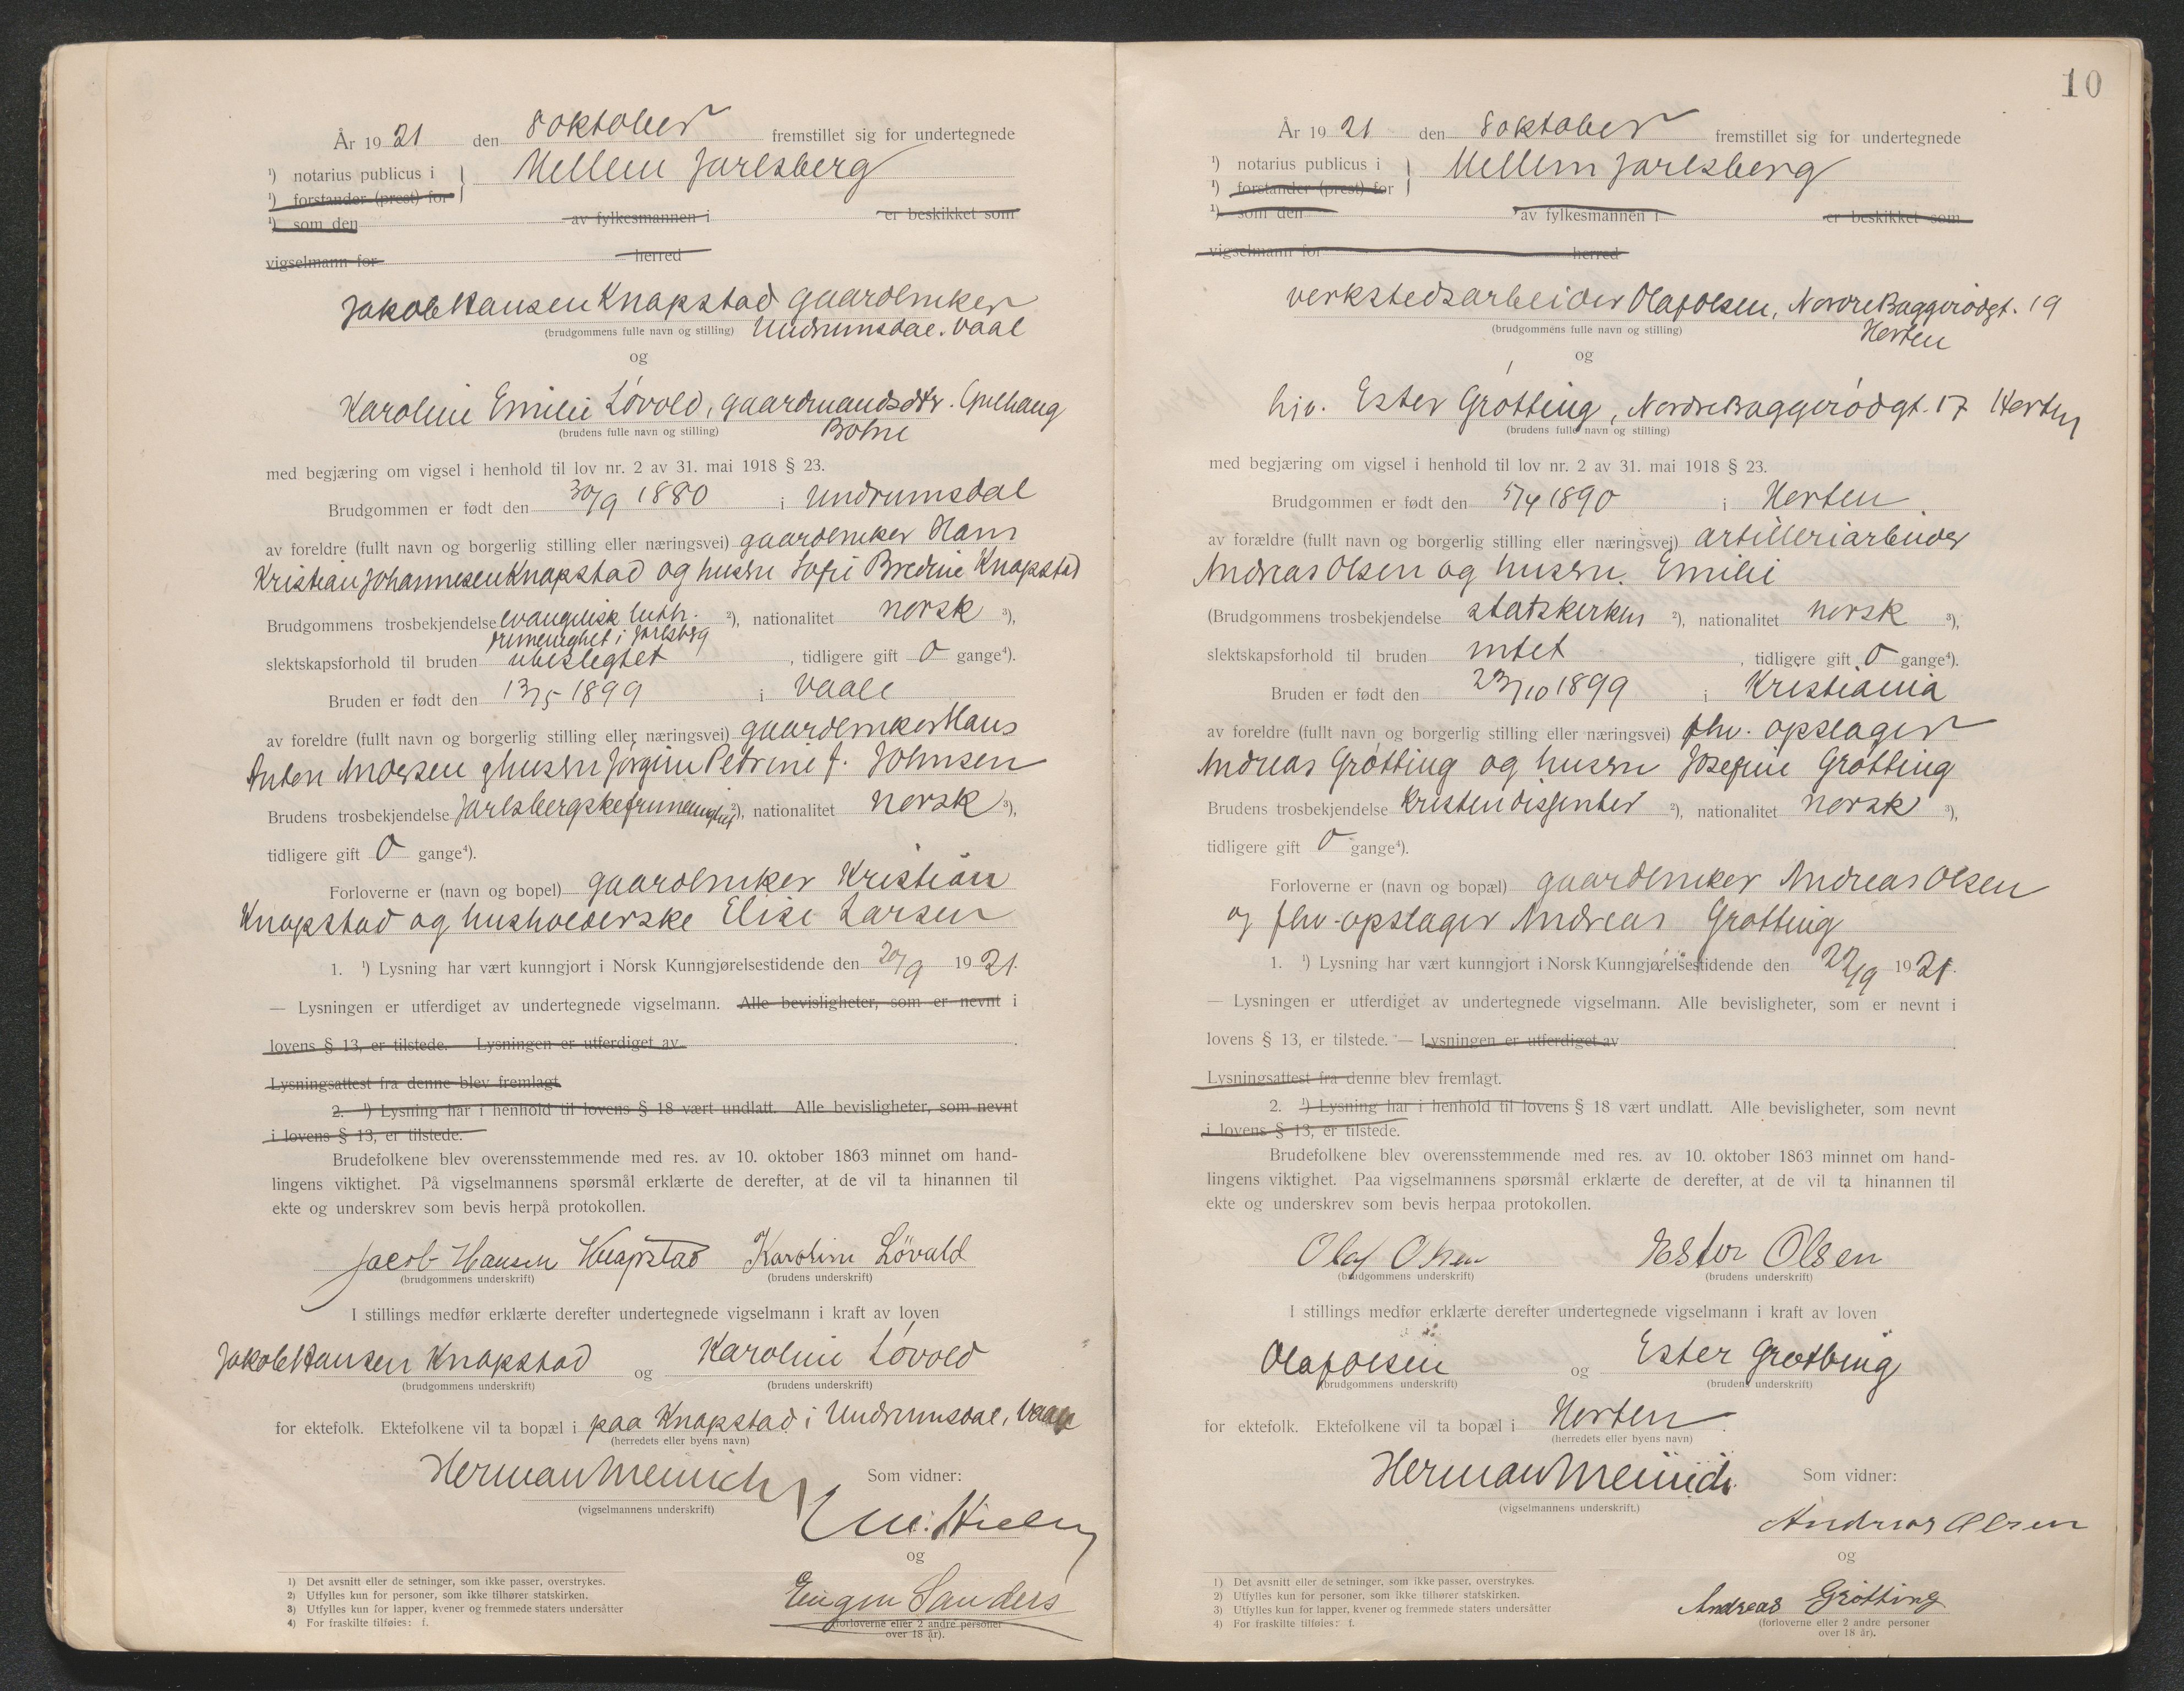 År 1921 den 8 oktober fremstillet sig for undertegnede
¹) notarius publicus i } Mellem Jarlsberg
¹) forstander (prest) for
¹) som den av fylkesmannen i er beskikket som
vigselmann for herred
Jakob Hansen Knapstad gaardbruker
(brudgommens fulle navn og stilling) Undrumsdal. Vaale
og
Karoline Emilie Løvold, gaardmandsdtr.
(brudens fulle navn og stilling) Botne
med begjæring om vigsel i henhold til lov nr. 2 av 31. mai 1918 § 23.
Brudgommen er født den 30/9 1880 i Undrumsdal
av foreldre (fullt navn og borgerlig stilling eller næringsvei) gaardbruker Hans
Kristian Johannesen Knapstad og hustru Sofie Bredine Knapstad
Brudgommens trosbekjendelse evangelisk luth. ²), nationalitet norsk ³),
frimenighet i Jarlsberg
slektskapsforhold til bruden ubeslegtet, tidligere gift 0 gange⁴).
Bruden er født den 13/5 1899 i Vaale
av foreldre (fullt navn og borgerlig stilling eller næringsvei) gaardbruker Hans
Anton Andersen og hustru Jørgine Petrine f. Johnsen
Brudens trosbekjendelse Jarlsbergske frimenighet ²), nationalitet norsk ³),
tidligere gift 0 gange⁴).
Forloverne er (navn og bopel) gaardbruker Kristian
Knapstad og husholderske Elise Larsen
1. ¹) Lysning har vært kunngjort i Norsk Kunngjørelsestidende den 20/9 1921.
— Lysningen er utferdiget av undertegnede vigselmann. Alle bevisligheter, som er nevnt i
lovens § 13, er tilstede. — Lysningen er utferdiget av .
Lysningsattest fra denne blev fremlagt.
2. ¹) Lysning har i henhold til lovens § 18 vært undlatt. Alle bevisligheter, som nevnt
i lovens § 13, er tilstede.
Brudefolkene blev overensstemmende med res. av 10. oktober 1863 minnet om hand-
lingens viktighet. På vigselmannens spørsmål erklærte de derefter, at de vil ta hinannen til
ekte og underskrev som bevis herpå protokollen.
Jacob Hansen Knapstad Karoline Lövold
(brudgommens underskrift) (brudens underskrift)
I stillings medfør erklærte derefter undertegnede vigselmann i kraft av loven
Jakob Hansen Knapstad og Karoline Løvold
(brudgommens underskrift) (brudens underskrift)
for ektefolk. Ektefolkene vil ta bopæl i paa Knapstad i Undrumsdal, Vaale
(herredets eller byens navn)
Herman Meinich Som vidner:
(vigselmannens underskrift)
og
Eugen Sanders
(forloverne eller 2 andre personer
over 18 år).
1) Det avsnitt eller de setninger, som ikke passer, overstrykes.
2) Utfylles kun for personer, som ikke tilhører statskirken.
3) Utfylles kun for lapper, kvener og fremmede staters undersåtter
4) For fraskilte tilføies: f.
10
År 1921 den 8 oktober fremstillet sig for undertegnede
¹) notarius publicus i } Mellem Jarlsberg
¹) forstander (prest) for
¹) som den av fylkesmannen i er beskikket som
vigselmann for herred
verkstedsarbeider Olaf Olsen, Nordre Baggerødgt. 19
(brudgommens fulle navn og stilling) Horten
og
hjv. Ester Grøtting, Nordre Baggerødgt. 17 Horten
(brudens fulle navn og stilling)
med begjæring om vigsel i henhold til lov nr. 2 av 31. mai 1918 § 23.
Brudgommen er født den 5/4 1890 i Horten.
av forældre (fullt navn og borgerlig stilling eller næringsvei) artilleriarbeider
Andreas Olsen og hustru. Emilie
(Brudgommens trosbekjendelse statskirken ²), nationalitet norsk ³),
slektskapsforhold til bruden intet, tidligere gift 0 gange⁴).
Bruden er født den 23/10 1899 i Kristiania
av foreldre (fullt navn og borgerlig stilling eller næringsvei) fhv. opslager
Andreas Grøtting og hustru Josefine Grøtting
Brudens trosbekjendelse kristen dissenter ²), nationalitet norsk ³),
tidligere gift 0 gange⁴).
Forloverne er (navn og bopæl) gaardbruker Andreas Olsen
og fhv. opslager Andreas Grøtting
1. ¹) Lysning har vært kunngjort i Norsk Kunngjørelsestidende den 22/9 1921.
— Lysningen er utferdiget av undertegnede vigselmann. Alle bevisligheter, som er nevnt i
lovens § 13, er tilstede. — Lysningen er utferdiget av
Lysningsattest fra denne blev fremlagt.
2. ¹) Lysning har i henhold til lovens § 18 vært undlatt. Alle bevisligheter, som nevnt
i lovens § 13, er tilstede.
Brudefolkene blev overensstemmende med res. av 10. oktober 1863 minnet om hand-
lingens viktighet. Paa vigselmannens spørsmål erklærte de derefter, at de vil ta hinannen til
ekte og underskrev som bevis herpaa protokollen.
Olaf Olsen Ester Olsen
(brudgommens underskrift) (brudens underskrift)
I stillings medfør erklærte derefter undertegnede vigselmann i kraft av loven
Olaf Olsen og Ester Grøtting
(brudgommens underskrift) (brudens underskrift)
for ektefolk. Ektefolkene vil ta bopæl i Horten.
(herredets eller byens navn)
Herman Meinich Som vidner:
(vigselmannens underskrift.)
Andreas Olsen
og
Andreas Grøtting
(forloverne eller 2 andre personer
over 18 år).
1) Det avsnitt eller de setninger, som ikke passer, overstrykes.
2) Utfylles kun for personer, som ikke tilhører statskirken.
3) Utfylles kun for lapper, kvener og fremmede staters undersåtter
4) For fraskilte tilføies: f.